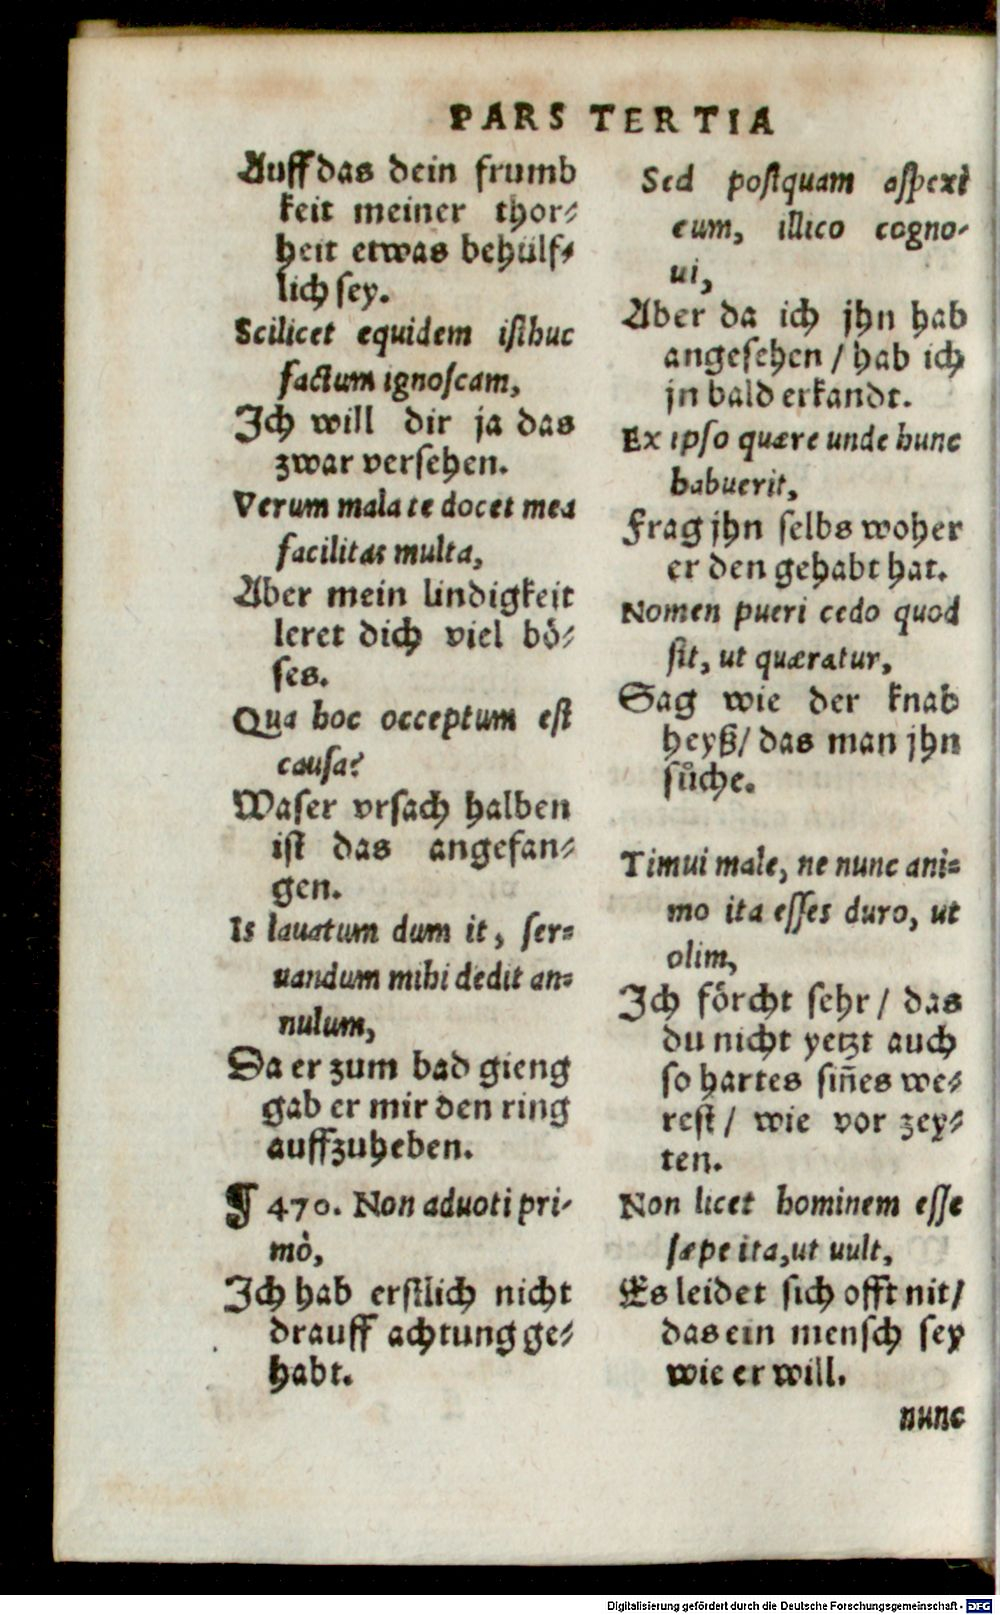 PARS TERTIA
Auff das dein frumb
keit meiner thor⸗
heit etwas behülf⸗
lich sey.
Scilicet equidem isthuc
factum ignoscam,
Ich will dir ja das
zwar versehen.
Verum mala te docet mea
facilitas multa,
Aber mein lindigkeit
leret dich viel bö⸗
ses.
Qua hoc occeptum est
causa?
Waser vrsach halben
ist das angefan⸗
gen.
Is lauatum dum it, ser⸗
uandum mihi dedit an⸗
nulum,
Da er zum bad gieng
gab er mir den ring
auffzuheben.
¶ 470. Non aduoti pri-
mò,
Ich hab erstlich nicht
drauff achtung ge⸗
habt.
Sed postquam aspexi
eum, illico cogno-
ui,
Aber da ich jhn hab
angesehen / hab ich
jn bald erkandt.
Ex ipso quære unde hunc
habuerit,
Frag jhn selbs woher
er den gehabt hat.
Nomen pueri cedo quod
sit, ut quæratur,
Sag wie der knab
heyß / das man jhn
sůche.
Timui male, ne nunc ani⸗
mo ita esses duro, ut
olim,
Ich förcht sehr / das
du nicht yetzt auch
so hartes siñes we⸗
rest / wie vor zey⸗
ten.
Non licet hominem esse
sæpe ita, ut uult,
Es leidet sich offt nit /
das ein mensch sey
wie er will.
nunc
Digitalisierung gefördert durch die Deutsche Forschungsgemeinschaft - DFG